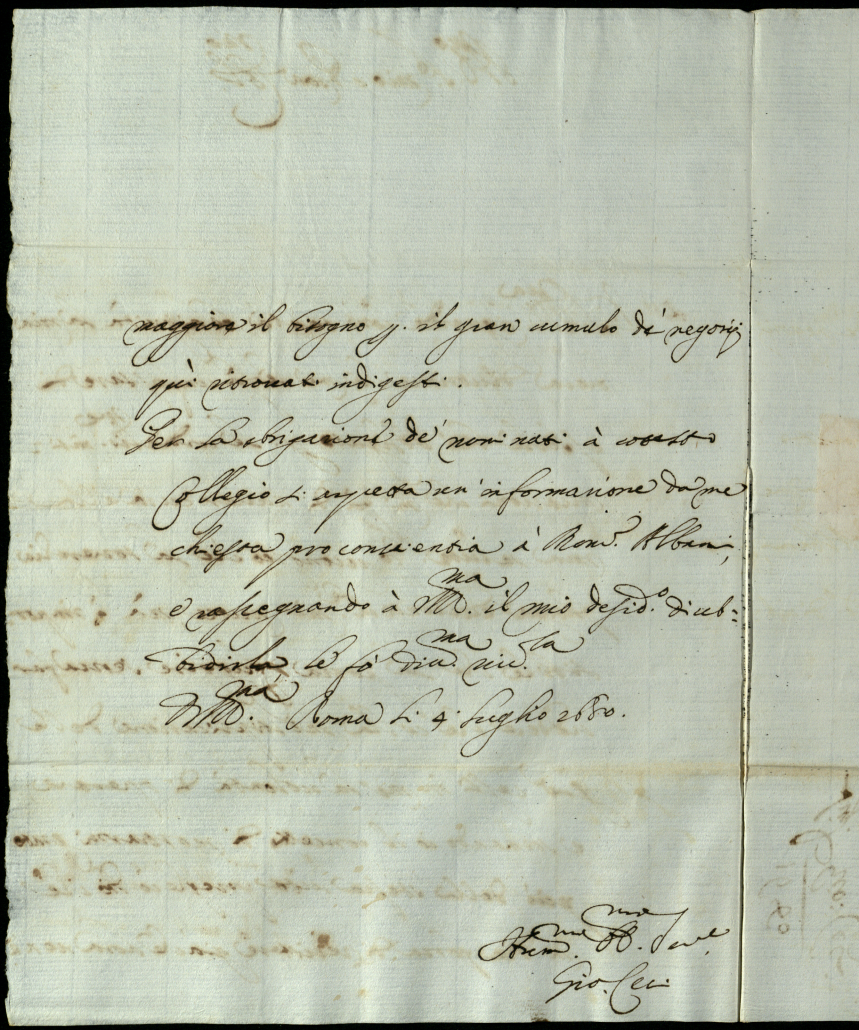 maggiore il bisogno p. il gran cumulo de' negorij
qui ritrovati indigesti.
Per la obrigazione de' nominati à cotesto
Collegio si aspetta un' informazione da me
chiesta pro conscientia à Mons.r Albani,
e rassegnando à V.S. Ill.ma il mio desid.o di ub=
bidirla le fo div.ma riv.za
D.V.S. Ill.ma Roma li 4. luglio 1680.
Hum.mo
Gio. Ceci